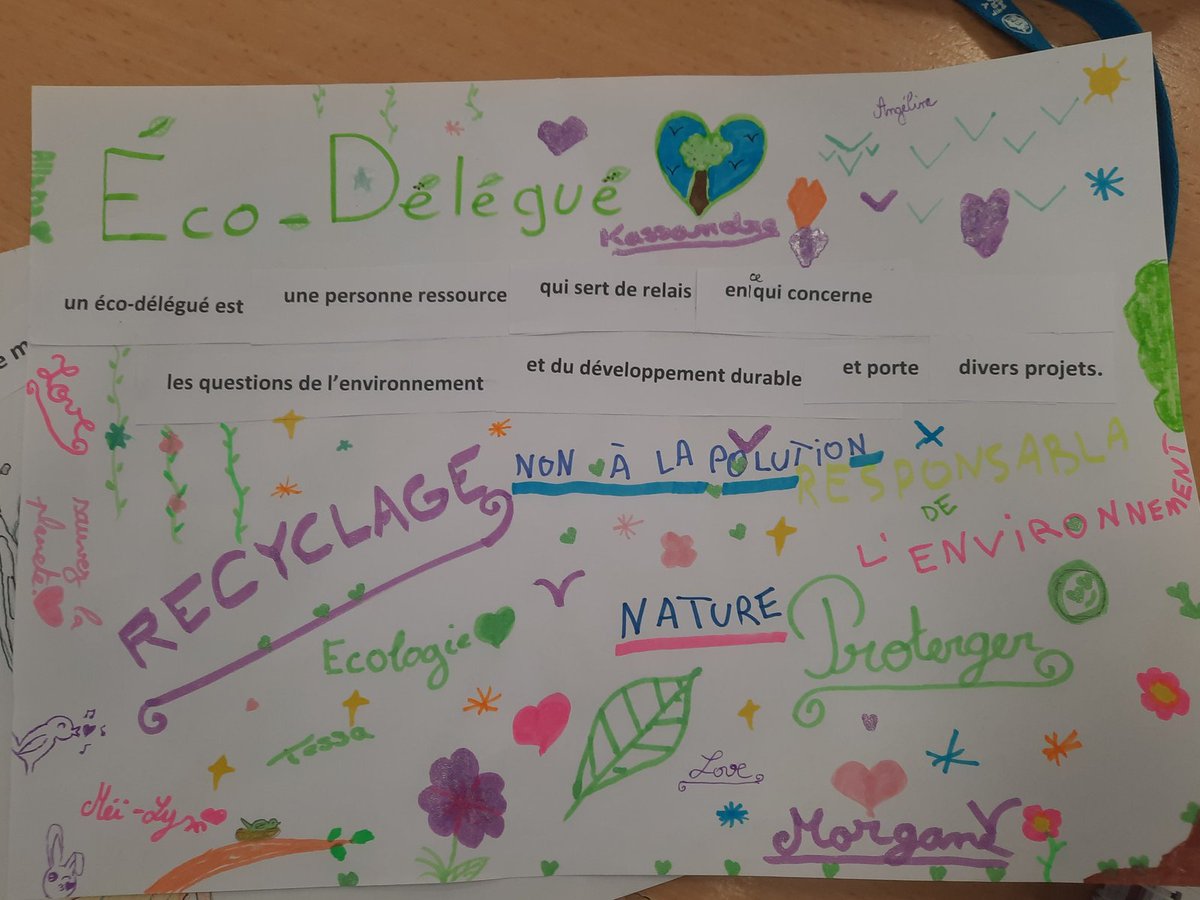 Éco-Délégué
Angéline
Kassandra
un éco-délégué est une personne ressource qui sert de relais en ce qui concerne
les questions de l'environnement et du développement durable et porte divers projets.
Love
NON À LA POLUTION
RESPONSABLA
DE
L'ENVIRONNEMENT
RECYCLAGE
sauvez la
planete.
NATURE
Proterger
Ecologie
Tessa
Love
Mëi-Lyn
Morgane